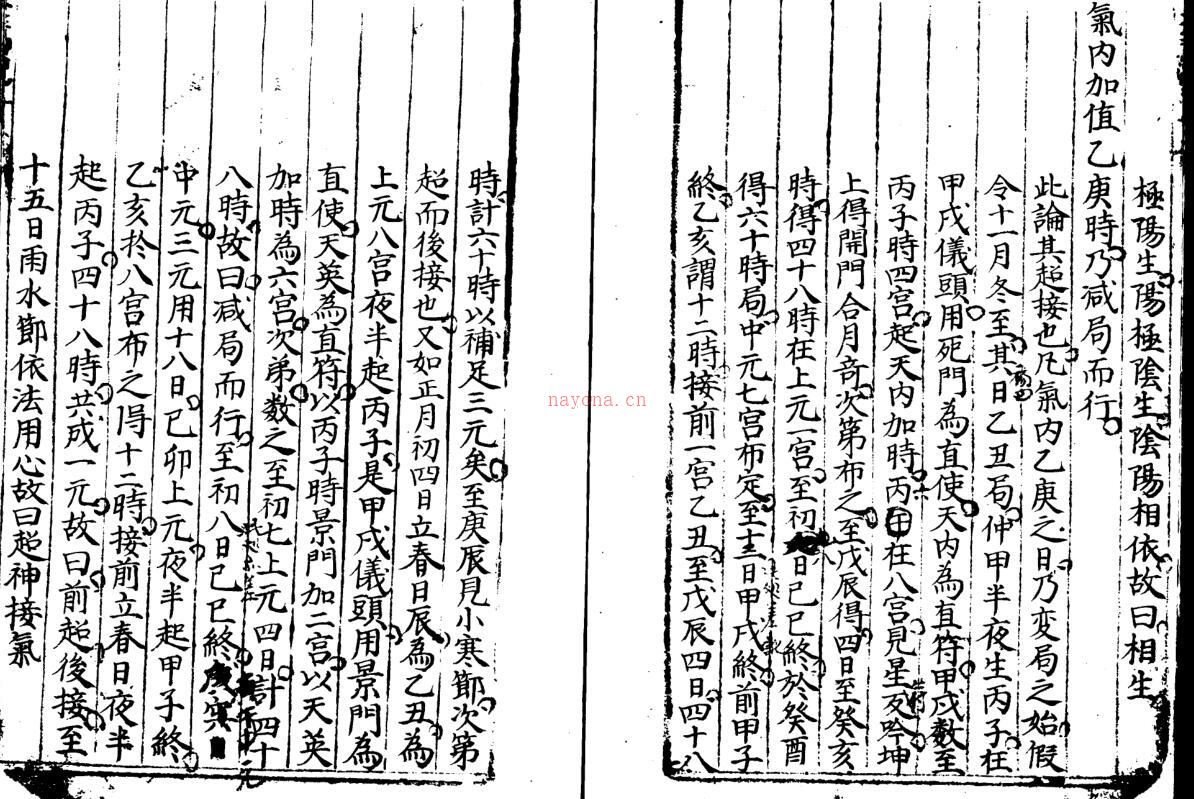 極陽生陽極陰生陰陽相依故曰相生
氣内加值乙庚時乃減局而行
此論其超接也凡氣内乙庚之日乃变局之始假
令十一月冬至其日乙丑局仲甲半夜生丙子在
甲戌儀頭用死門為直使天内為直符甲戌数至
丙子時四宫起天内加時丙在八宫見星反吟坤
上得開門合月竒次第布之至戊辰得四日至癸亥
時得四十八時在上元一宫至初日己巳終於癸酉
得六十時局中元七宫布定至十三日甲戌終前甲子
終乙亥謂十二時接前一宫乙丑至戊辰四日四十八
時計六十時以補足三元矣至庚辰見小寒節次第
超而後接也又如正月初四日立春日辰為乙丑為
上元八宫夜半起丙子是甲戌儀頭用景門為
直使天英為直符以丙子時景門加二宫以天英
加時為六宫次弟数之至初七上元四日計四十
八時故曰减局而行至初八日己巳終
中元三元用十八日己卯上元夜半起甲子終
乙亥於八宫布之得十二時接前立春日夜半
起丙子四十八時共成一元故曰前超後接至
十五日雨水節依法用心故曰超神接氣
nayona.cn